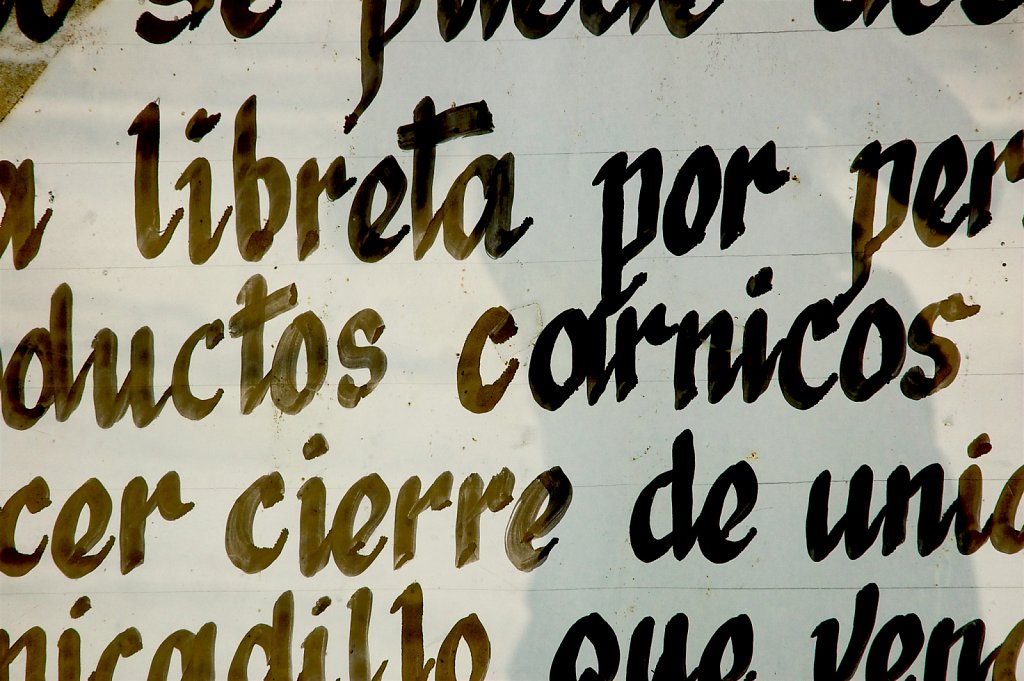 se puede des
a libreta por per
ductos cárnicos
cer cierre de unid
nicadillo que ven